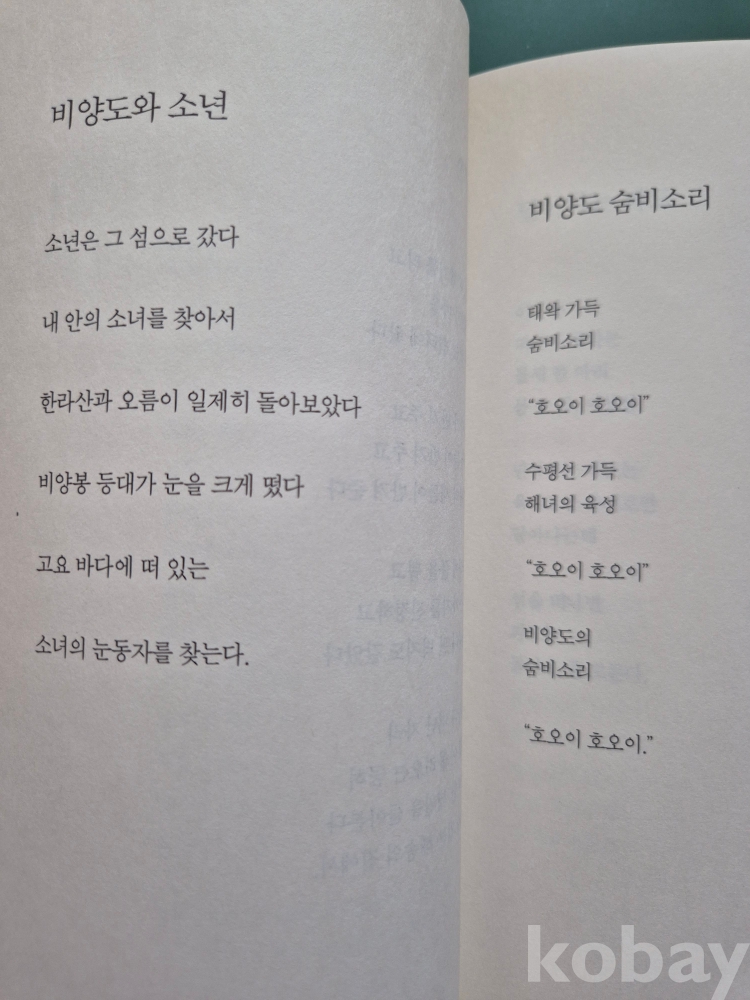 비양도와 소년
소년은 그 섬으로 갔다
내 안의 소녀를 찾아서
한라산과 오름이 일제히 돌아보았다
비양봉 등대가 눈을 크게 떴다
고요 바다에 떠 있는
소녀의 눈동자를 찾는다.
비양도 숨비소리
태왁 가득
숨비소리
“호오이 호오이”
수평선 가득
해녀의 육성
“호오이 호오이”
비양도의
숨비소리
“호오이 호오이.”
kobay